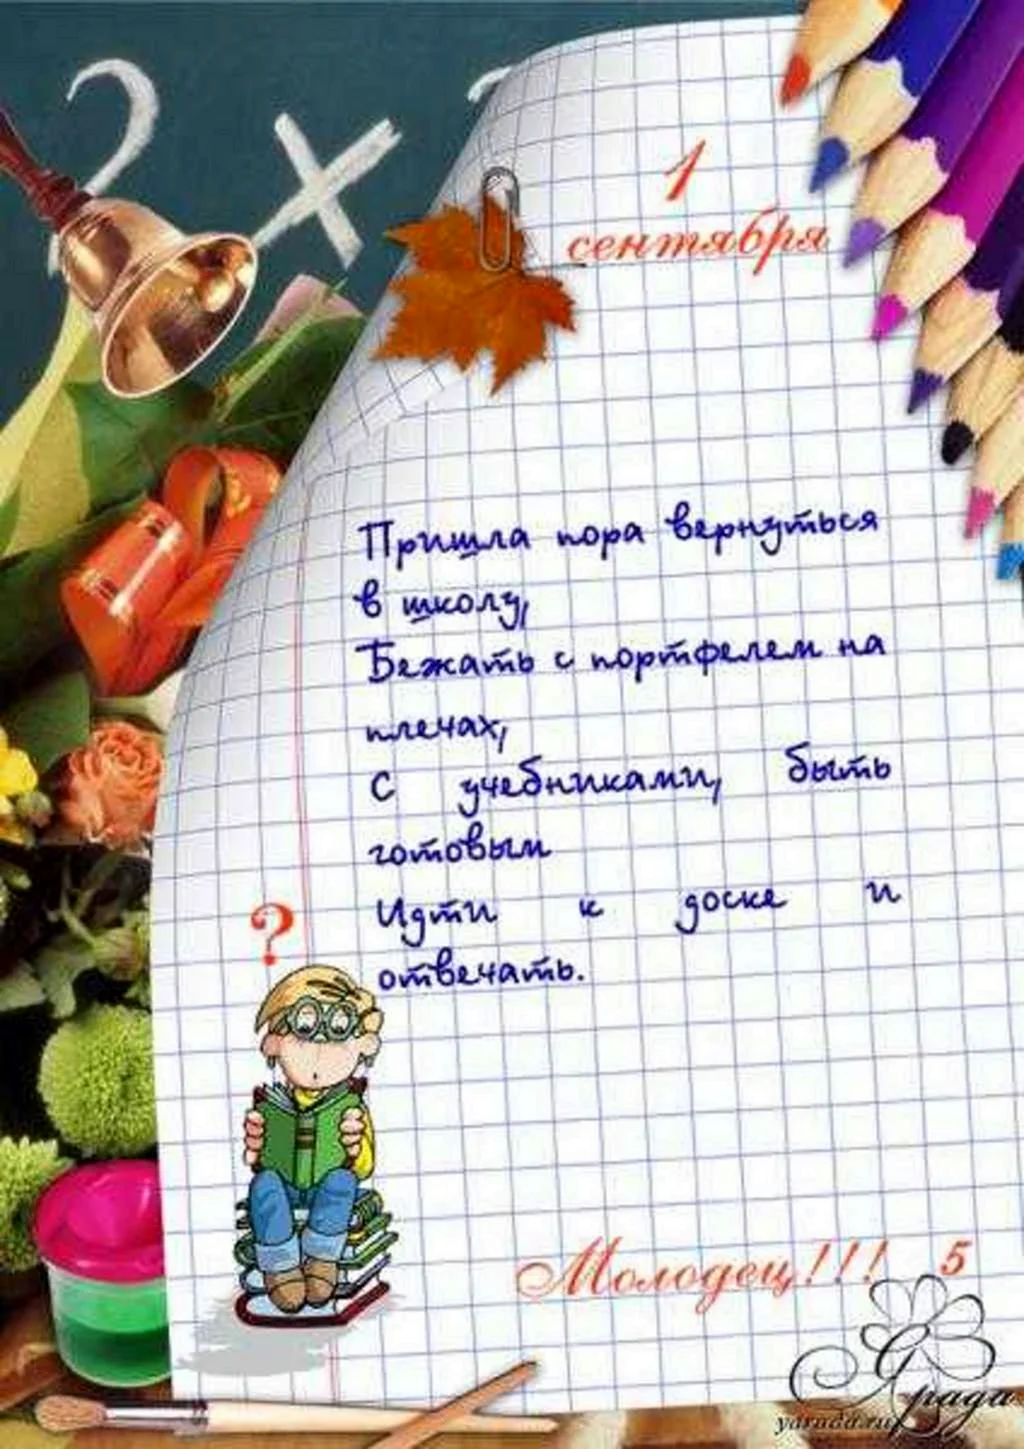 2 ×
1
сентября
Пришла пора вернуться
в школу,
Бежать с портфелем на
плечах,
С учебниками, быть
готовым
Идти к доске и
отвечать.
?
Молодец!!! 5
Ярада
yarada.ru